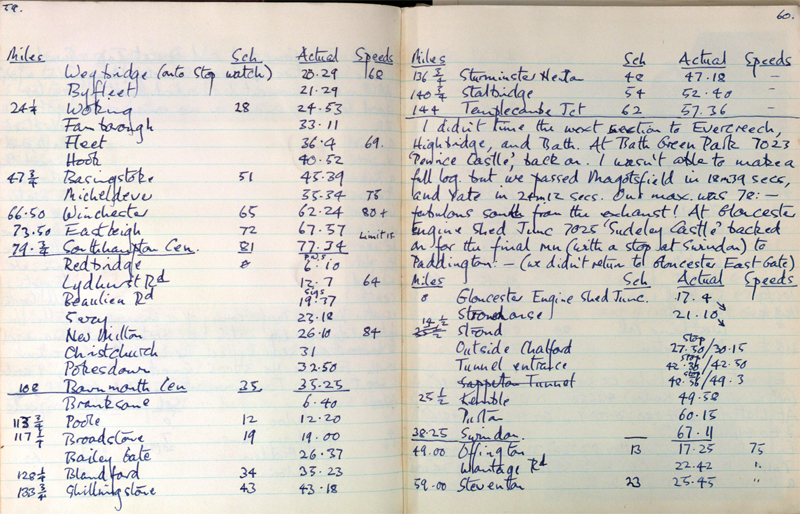 58.
Miles Sch Actual Speeds
Weybridge (onto stop watch) 20.29 68
Byfleet 21.29
24 1/4 Woking 28 24.53
Farnborough 33.11
Fleet 36.4 69.
Hook 40.52
47 3/4 Basingstoke 51 45.39
Micheldever 55.34 75
66.50 Winchester 65 62.24 80+
73.50 Eastleigh 72 67.57
79. 3/4 Southampton Cen. 81 77.34 Limit 15
Redbridge 0 6.10
Lyndhurst Rd 12.7 64
Beaulieu Rd sigs 19.37
Sway 23.18
New Milton 26.10 84
Christchurch 31
Pokesdown 32.50
108 Bournmouth Cen 35 35.25
Branksome 6.40
113 3/4 Poole 12 12.20
117 1/4 Broadstone 19 19.00
Bailey Gate 26.37
128 1/4 Blandford 34 35.23
133 3/4 Shillingstone 43 43.18
60.
Miles Sch Actual Speeds
136 3/4 Sturminster Newton 48 47.18 –
140 3/4 Stalbridge 54 52.40 –
144 Templecombe Jct 62 57.36 –
I didn't time the next section to Evercreech,
Highbridge, and Bath. At Bath Green Park 7023
'Penrice Castle', back on. I wasn't able to make a
full log. but we passed Mangotsfield in 18m39 secs,
and Yate in 24m12 secs. Our max. was 78: –
fabulous sound from the exhaust! At Gloucester
Engine shed Junc 7025 'Sudeley Castle' backed
on for the final run (with a stop at Swindon) to
Paddington: – (we didn't return to Gloucester East Gate)
Miles Sch Actual Speeds
0 Gloucester Engine Shed Junc. 17.4
Stonehouse 21.10
Stroud
Outside Chalford stop 27.50/30.15
Tunnel entrance stop 42.36/42.50
Sapperton Tunnel stop 48.56/49.3
25 1/2 Kemble 49.58
Purton 60.15
38.25 Swindon. — 67.11
49.00 Uffington 13 17.25 75
Wantage Rd 22.42 "
59.00 Steventon 23 25.45 "